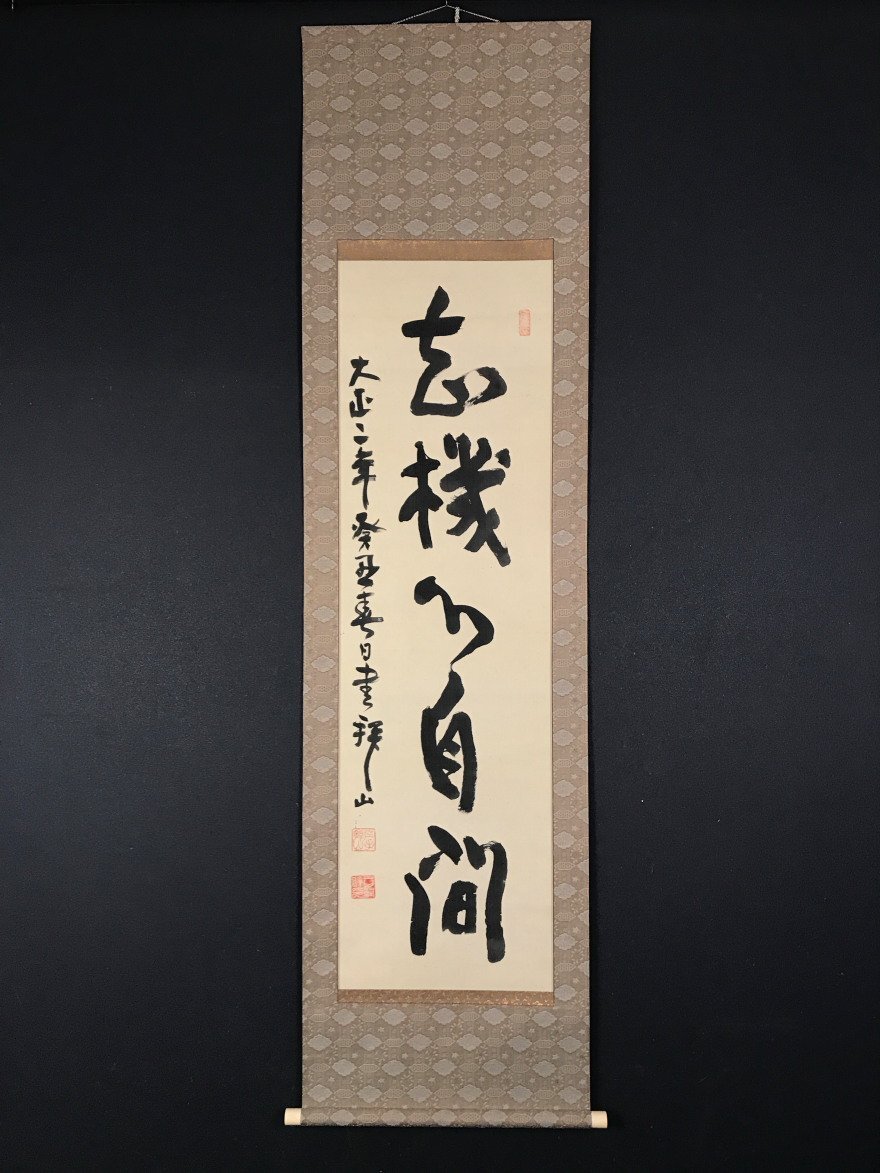 忘機心自間
大正二年癸丑春日書